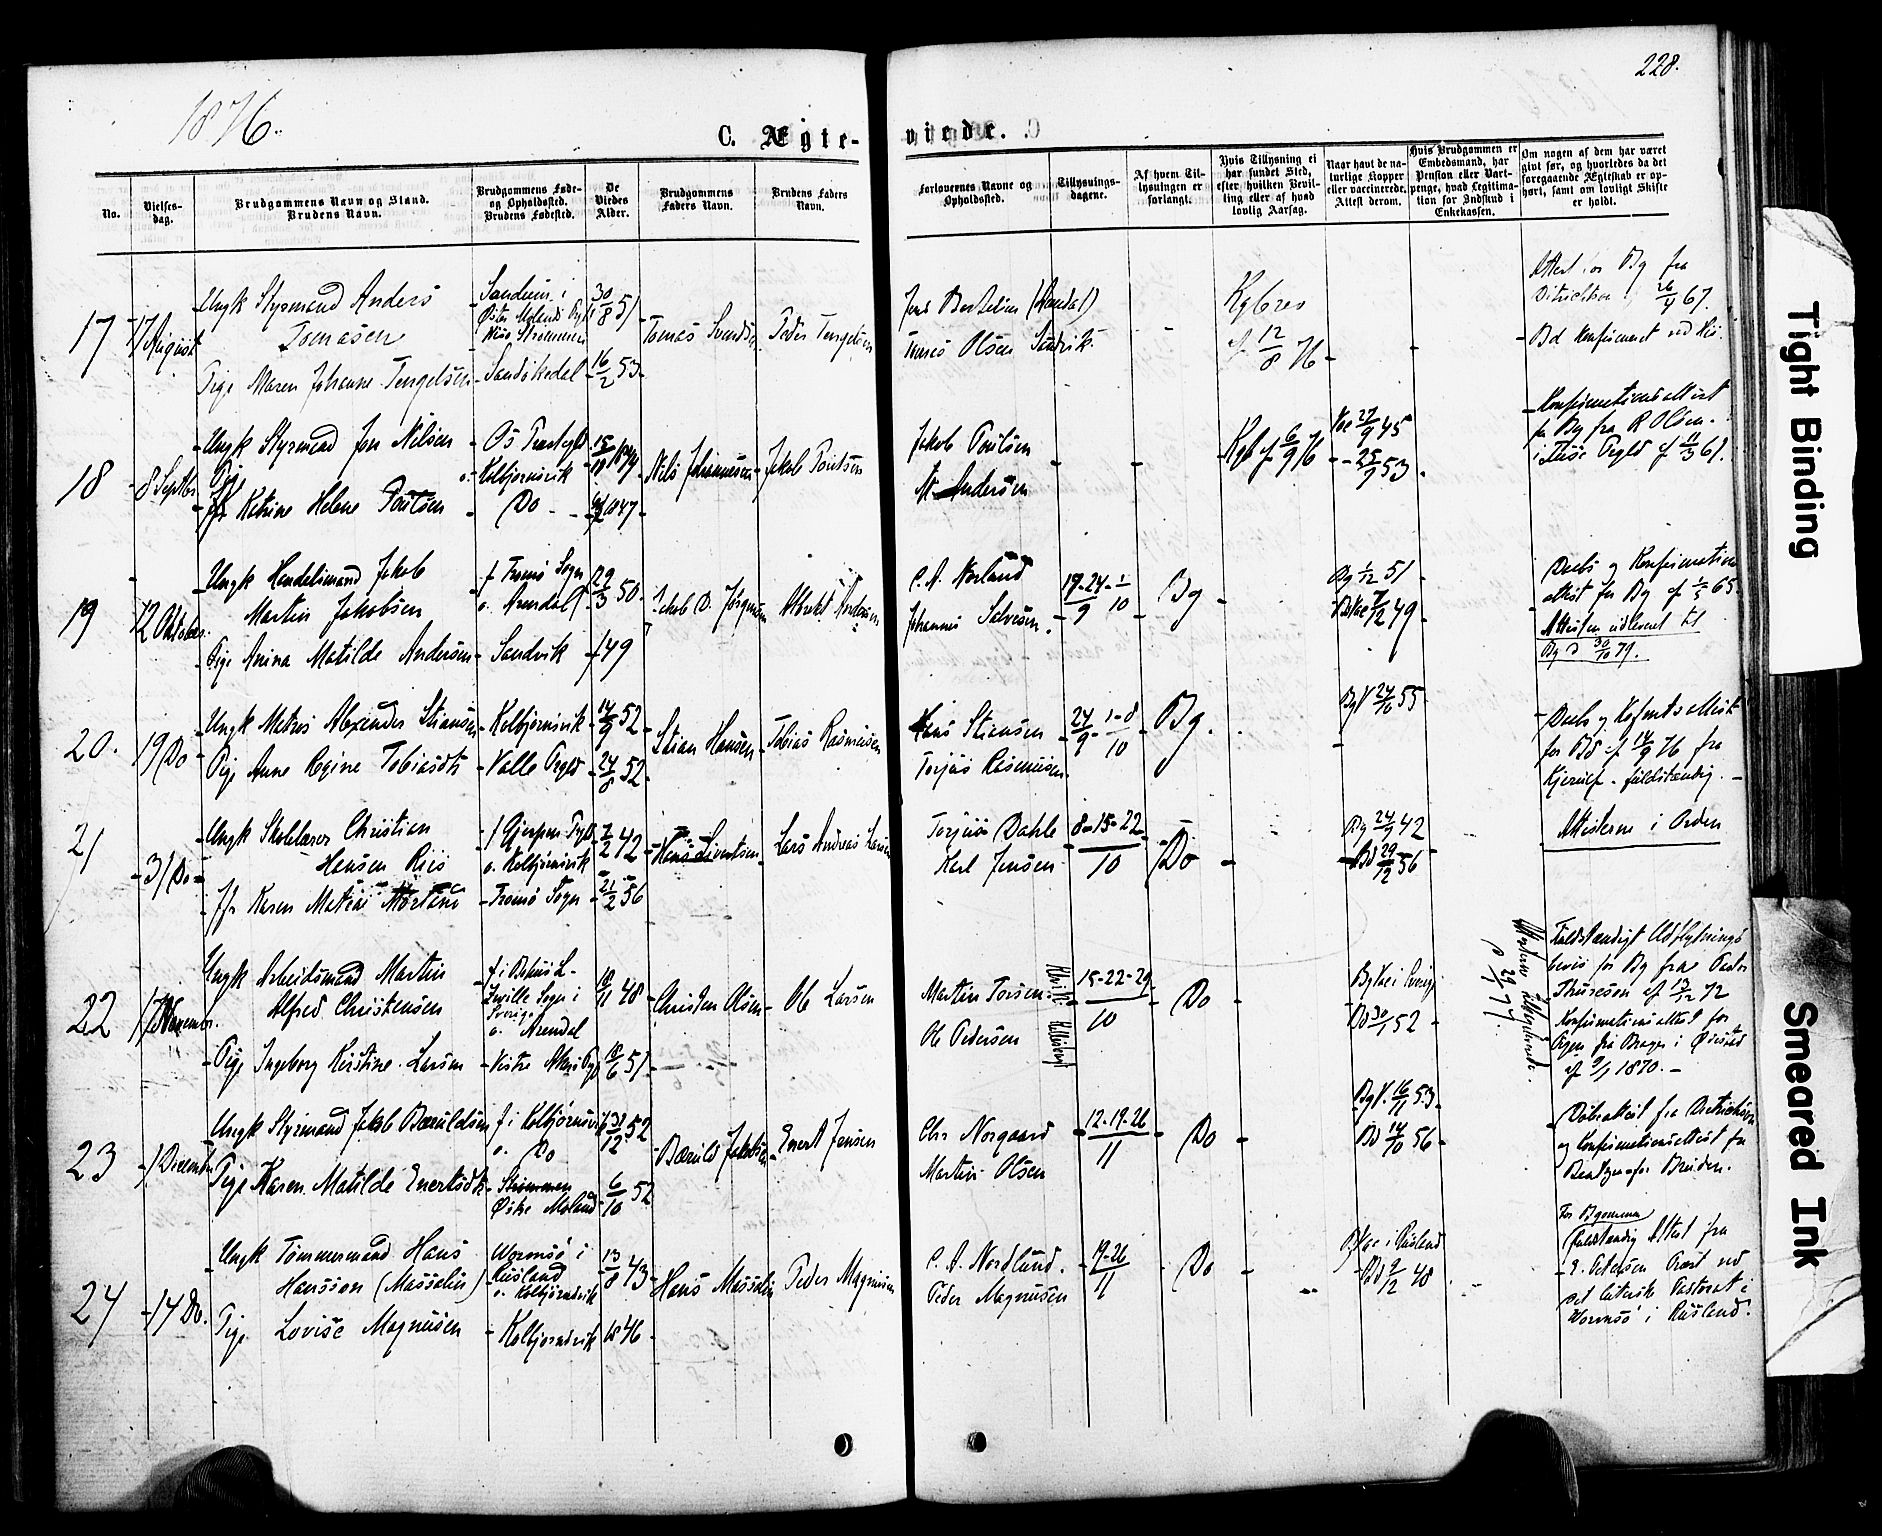 228.
1876.
C. Ægte-
viede.
No.
Vielses-
dag.
Brudgommens Navn og Stand.
Brudens Navn.
Brudgommens Føde-
og Opholdssted.
Brudens Fødested.
De
Viedes
Alder.
Brudgommens
Faders Navn.
Brudens Faders
Navn.
Forlovernes Navne og
Opholdssted.
Tillysnings-
dagene.
Af hvem Til-
lysningen er
forlangt.
Hvis Tillysning ei
har fundet Sted,
efter hvilken Bevil-
ling eller af hvad
lovlig Aarsag.
Naar havt de na-
turlige Kopper
eller vaccinerede.
Attest derom.
Hvis Brudgommen er
Embedsmand, har
Pension eller Vart-
penge, hvad Legitima-
tion for Indskud i
Enkekassen.
Om nogen af dem har været
givt før, og hvorledes da det
foregaaende Ægteskab er op-
hørt, samt om lovligt Skifte
er holdt.
17
17 August
Ungk Styrmand Anders
Tomasen
Pige Maren Johanne Tengelsen
Sandum i
Øster Molands
Strømmen
Sandåkedal
30/8 51
16/2 53
Tomas Svendsen
Peder Tengelsen
Jens Bertelsen (Arendal)
Tomas Olsen Sandvik
Kgbrev
af 12/8 76
Attest for Bg fra
26/4 67.
Bd konfirmeret ved
18
8 Septbr
Ungk Styrmand Jon Nilsen
Pige
Katrine Helene Poulsen
Os Præstegld
o. Kolbjørnsvik
Do
1847
Nils Johannesen
Jakob Poulsen
Jakob Poulsen
Andersen
Kgb af 6/9 76
Vac 27/9 45
25/7 53
Konfirmationsattest
for Bg fra R Olsen
Prgld af 11/3 61.
19
12 Oktober
Ungk Handelsmand Jakob
Martin Jakobsen
Pige Anina Matilde Andersen
f Tromø Sogn
o. Arendal
Sandvik
29/3 50
49
Jakob D. Jørgensen
Albrekt Andersen
C. A. Norland
Johannes Salvesen
17-24/9 1/10
Bg
Bg 1/12 51
Bd Vac 7/12 49
Daabs og Konfirmation
attest for Bg af 65.
Attesten udleveret til
Bg d 30/10 79.
20.
19 Do
Ungk Matias Alexander Stiansen
Pige Anne Regine Tobiasdtr
Kolbjørnsvik
Valle Prgld
14/9 52
24/8 52
Stian Hansen
Tobias Rasmusen
Hans Stiansen
Torjus Rasmusen
24/9 1-8/10
Bg.
Bg V 24/10 55
Daabs og Kofmtsattest
for Bd af 14/9 76 fra
Kjerulf - fuldstændig.
21
31 Do
Ungk Skolelærer Christian
Hansen Riis
Jfr Karen Matias Mørland
f Gjerpen Prgld
o. Kolbjørnsvik
Tromø Sogn
7/2 42
21/2 56
Hans Sivertsen
Lars Andreas Larsen
Torjus Dahle
Karl Jensen
8-15-22/10
Do
Bg 24/9 42
Bd 29/12 56
Attesterne i Orden
22
17 Novembr.
Ungk Arbeidsmand Martin
Alfred Christensen
Pige Ingeborg Kirstine Larsen
Sogn i
Sverige
o. Arendal
18/11 48
18/6 51
Christen Olsen
Ole Larsen
Martin Torsen
Ole Pedersen
15-22-29/10
Do
Bg Vac i Sverige
Bd 30/1 52
Fuldstændigt Udflytnings
bevis for Bg fra Pastor
Thureson af 13/12 72
Konfirmationsattest for
Pigen fra Brager i Øiestad
af 9/1 1870.
23
1 December
Ungk Styrmand Jakob Bærulsen
Pige Karen Matilde Enertsdtr
f. i Kolbjørnsvik
o. Do
Strømmen
Østre Moland
31/12 52
6/10 52
Bærulf Jakobsen
Enert Jensen
Chr Norgaard
Martin Olsen
12-19-26/11
Do
Bg V. 16/11 53
Bd 14/10 56
Daabsattest fra Dietrichson
og Konfirmationsattest fra
for Bruden.
24
14 Do.
Ungk Tømmermand Hans
Hansson (Massalin)
Pige Lovise Magnusen
Wormsö i
Rusland
o. Kolbjørnsvik
Kolbjørnsvik
13/8 43
1846
Hans Massalin
Peder Magnusen
C. A. Nordlund.
Peder Magnusen
19-26/11
Do
Bg Vac i Rusland
Bd 9/12 48
For Bgommen
fuldstændig Attest fra
E. Petersen Præst ved
det luterske Pastorat i
Wormsö i Rusland.
Tight Binding
Smeared Ink